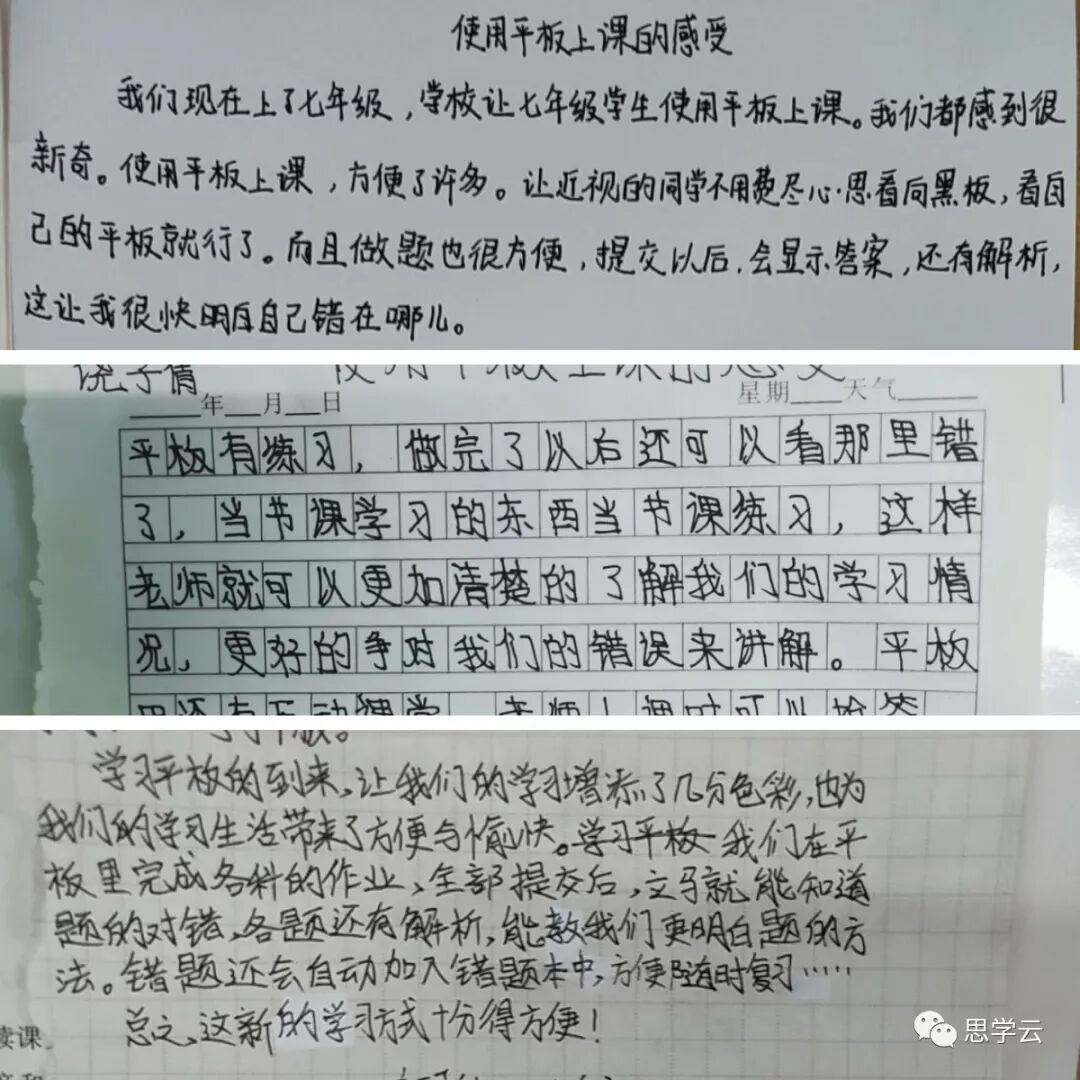 使用平板上课的感受
我们现在上了七年级，学校让七年级学生使用平板上课。我们都感到很
新奇。使用平板上课，方便了许多。让近视的同学不用费尽心思看向黑板，看自
己的平板就行了。而且做题也很方便，提交以后，会显示答案，还有解析，
这让我很快明白自己错在哪儿。
使用平板上课的感受
年 月 日 星期 天气
平板有练习，做完了以后还可以看那里错
了，当节课学习的东西当节课练习，这样
老师就可以更加清楚的了解我们的学习情
况，更好的争对我们的错误来讲解。平板
学习平板的到来，让我们的学习增添了几分色彩，也为
我们的学习生活带来了方便与愉快。学习平板 我们在平
板里完成各科的作业，全部提交后，立马就能知道
题的对错，各题还有解析，能教我们更明白题的方
法。错题还会自动加入错题本中，方便随时复习……
总之，这新的学习方式十分得方便！
读课
思学云